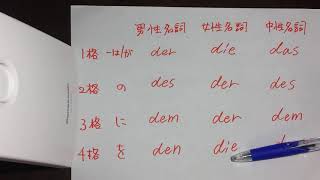 男性名詞 女性名詞 中性名詞
1格 -は/が der die das
2格 の des der des
3格 に dem der dem
4格 を den die